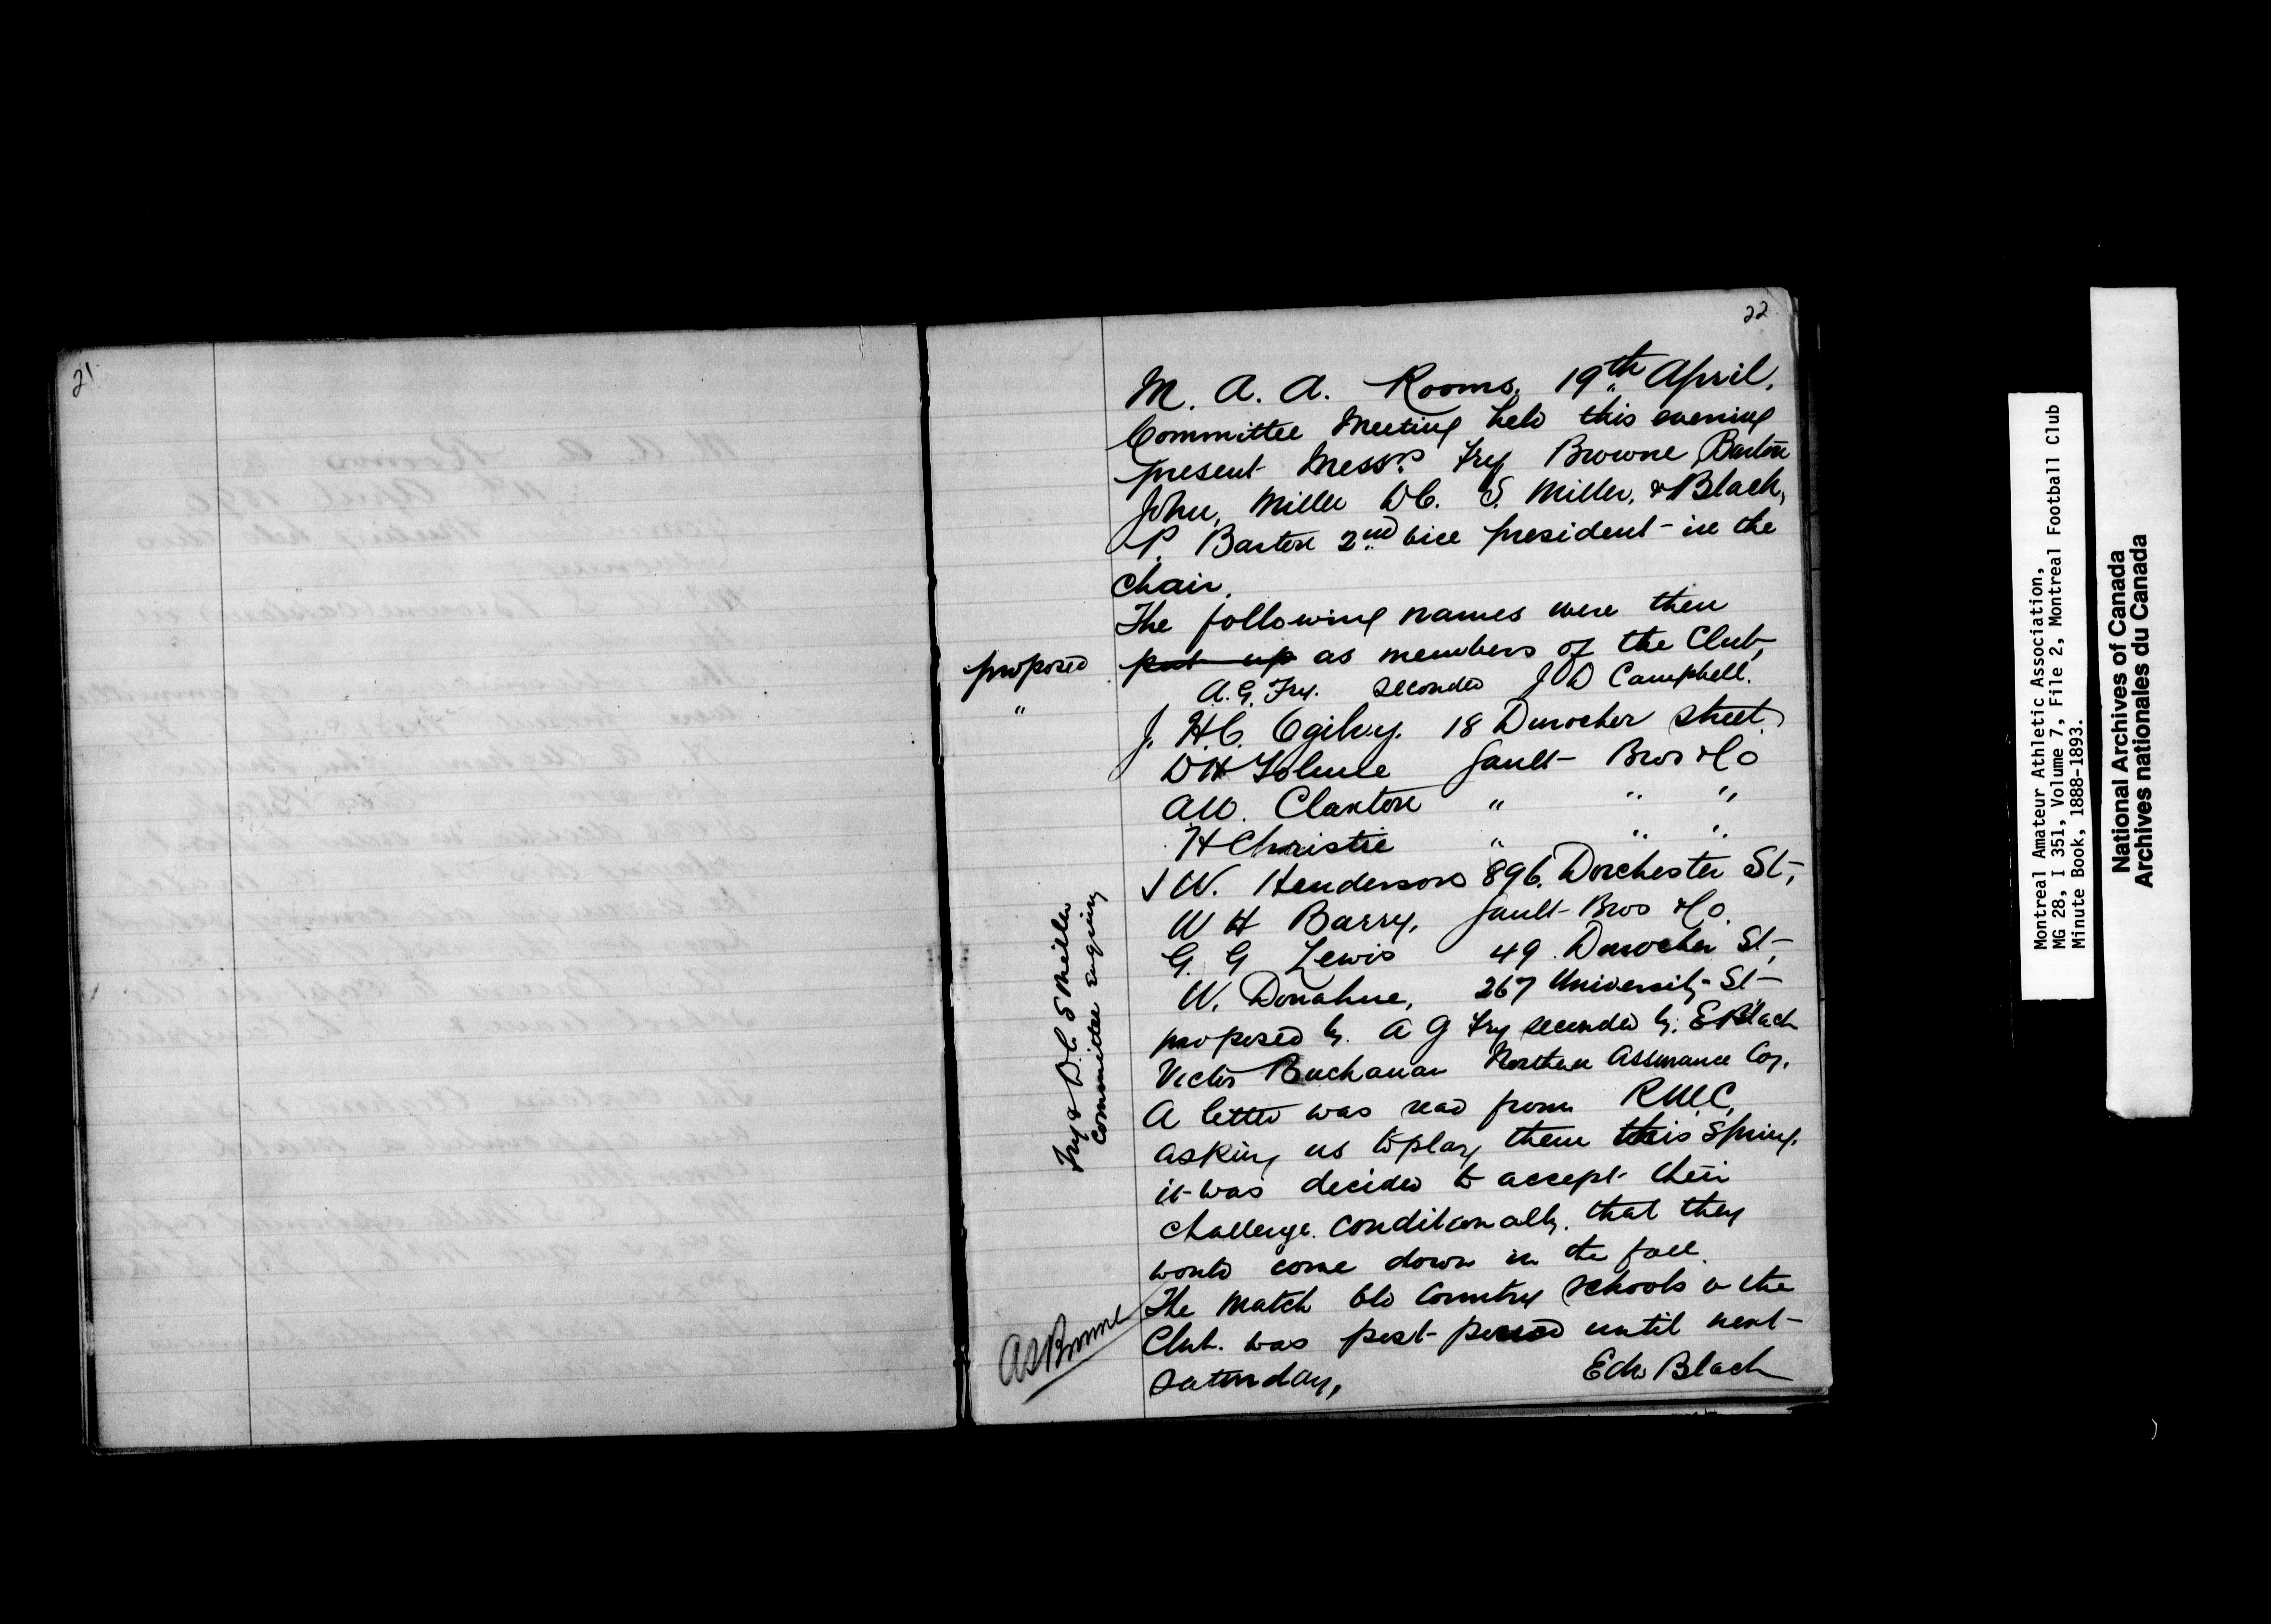 21
22
M. A. A. Rooms. 19th April.
Committee Meeting held this evening
present Messrs Fry Browne Barton
John, Miller D.C. S. Miller, & Black,
P. Barton 2nd vice president in the
chair.
The following names were then
proposed put up as members of the Club,
" A.G. Fry. seconded J D Campbell.
J. H.C. Ogilvy. 18 Durocher street
D H Gault Bros & Co
A.W. Claxton " " "
H Christie " " "
J W. Henderson 896. Dorchester St,
W H Barry, Gault Bros & Co.
G. G Lewis 49 Durocher St,
W. Donahue, 267 University St
proposed by A G Fry seconded by. E Black
Victor Buchanan Northern Assurance Coy.
A letter was read from RMC,
asking us to play them this Spring.
it was decided to accept their
challenge. conditionally. that they
would come down in the fall.
The match Old Country schools v the
Club. was post-poned until next
Saturday,
Edw Black
Fry & D.C. S Miller
committee enquiry
A S Browne
Montreal Amateur Athletic Association,
MG 28, I 351, Volume 7, File 2, Montreal Football Club
Minute Book, 1888-1893.
National Archives of Canada
Archives nationales du Canada